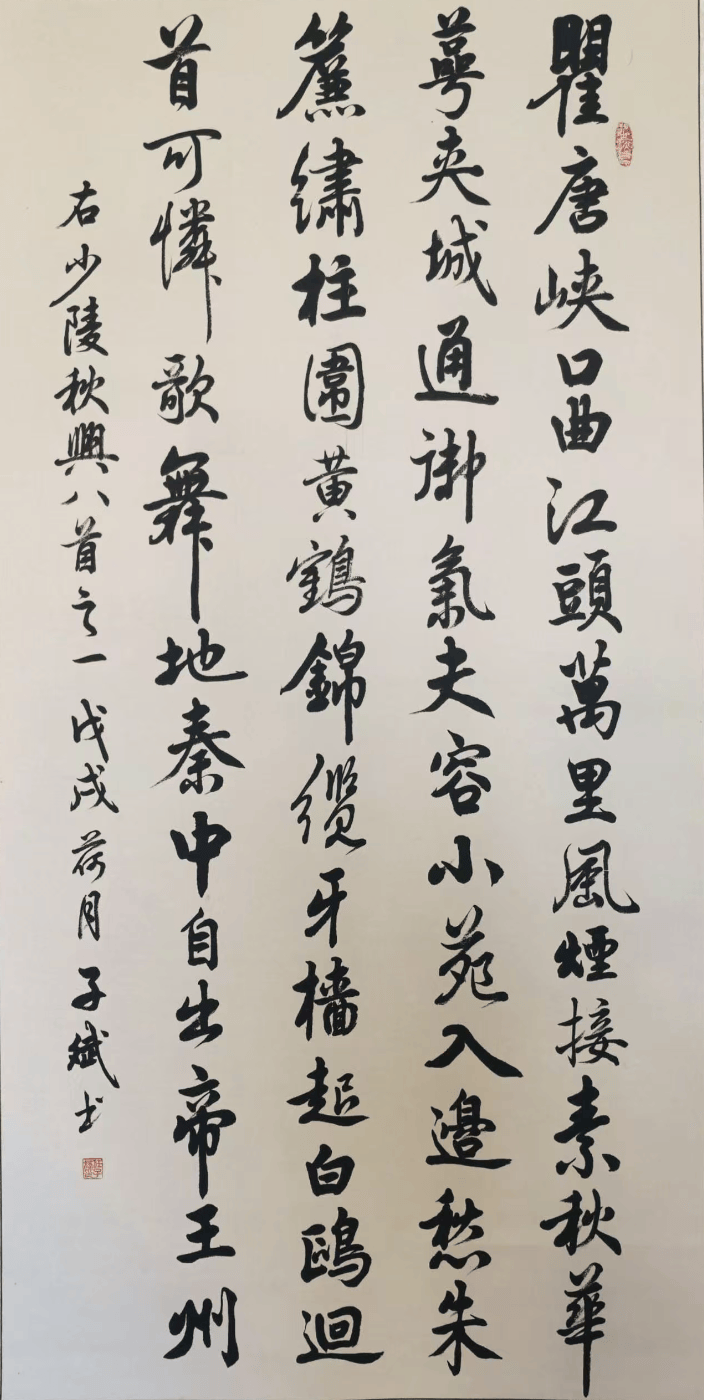 瞿唐峽口曲江頭萬里風煙接素秋華
萼夾城通御氣夫容小苑入邊愁朱
簾繡柱圍黃鶴錦纜牙檣起白鷗迴
首可憐歌舞地秦中自古帝王州
右少陵秋興八首之一 戊戌荷月子斌书